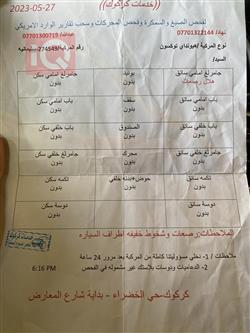 2023-05-27
((خدمات كركوك))
لفحص الصبغ والسمكرة وفحص المحركات وسحب تقارير الوارد الامريكي
نهاد/ 07701322144
عبدالله/ 07700300719
نوع المركبة /هيونداي توكسون
رقم المركبة/274549-سليمانيه
السيد/
جاملرغ امامي سائق
هلال رصعات
بونيد
بدون
جاملرغ امامي سكن
بدون
باب امامي سائق
بدون
سقف
بدون
باب امامي سكن
بدون
باب خلفي سائق
بدون
الصندوق
بدون
باب خلفي سكن
بدون
جاملرغ خلفي سائق
بدون
محرك
بدون
جاملرغ خلفي سكن
بدون
تكمه سائق
بدون
حوض+بدنه خلفي
بدون
تكمه سكن
بدون
دوسة سائق
بدون
دوسة سكن
بدون
الملاحظات:رصعات وشخوط خفيفه اطراف السياره
ملاحظات / 1- نخلي مسؤوليتنا كاملة من الفحص بعد مرور 24 ساعة
2- الدعاميات ودوسات بلاستك غير مشمولة في الفحص
6:16 PM
كركوك-حي الخضراء - بداية شارع المعارض